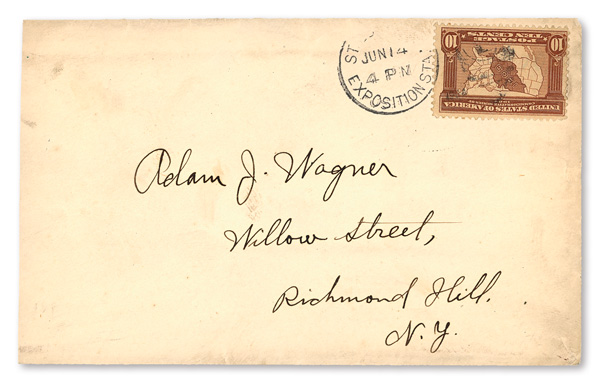 ST
JUN 14
4 PM
EXPOSITION STA.
10 10
POSTAGE
TEN CENTS
UNITED STATES OF AMERICA
Adam J. Wagner
Willow Street,
Richmond Hill.
N. Y.